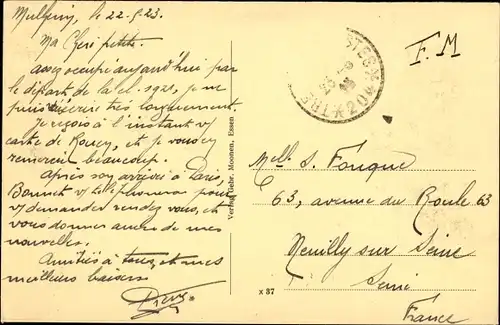 Mulheim, le 22-5-23.
Ma Chère petite.
Assez occupé aujourd'hui par
le départ de la cl. 1921, je ne
puis écrire très longuement.
Je reçois à l'instant v/
carte de Rouen, et je vous en
remercie beaucoup.
Après son arrivée à Paris,
Bonnet v/ téléphonera pour
v/ demander rendez vous, et
vous donner aussi de mes
nouvelles.
Amitiés à tous, et mes
meilleurs baisers
Verlag Gebr. Moonen, Essen
x 37
F.M
Melle S. Fouque
63, avenue du Roule 63
Neuilly sur Seine
Seine
France